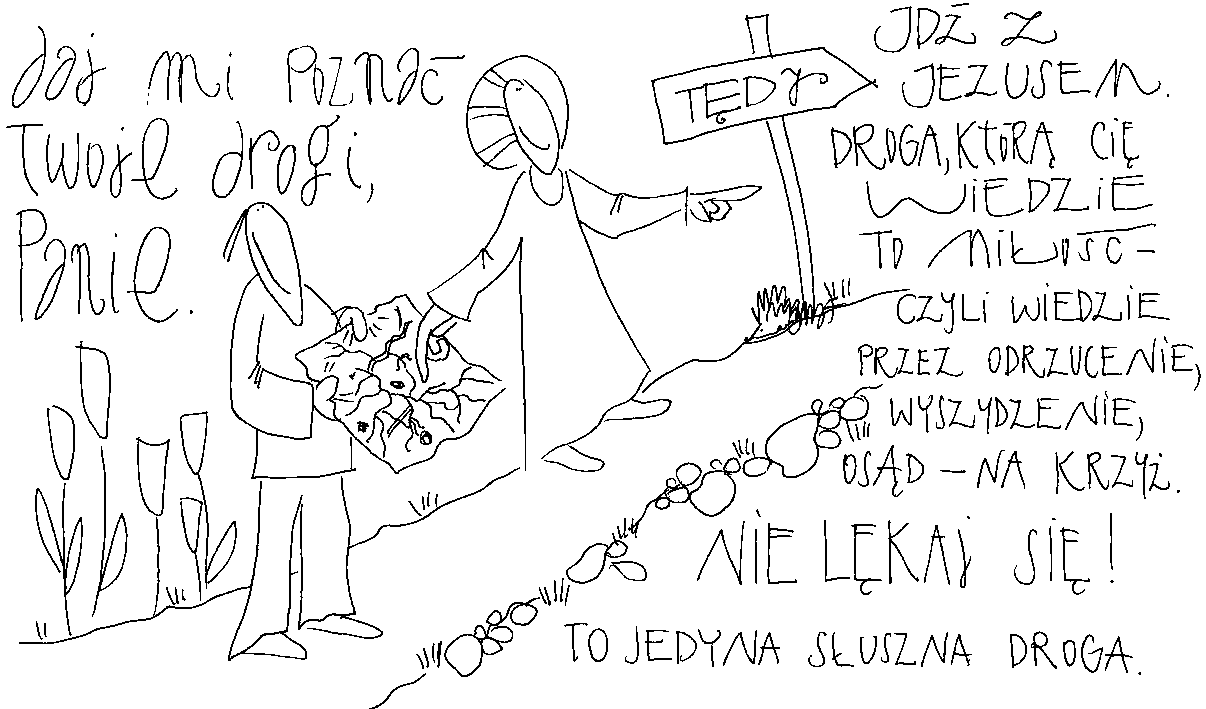 daj mi poznać
Twoje drogi,
Panie.
TĘDY
IDŹ Z
JEZUSEM.
DROGA, KTÓRĄ CIĘ
WIEDZIE
TO MIŁOŚĆ –
CZYLI WIEDZIE
PRZEZ ODRZUCENIE,
WYSZYDZENIE,
OSĄD – NA KRZYŻ.
NIE LĘKAJ SIĘ!
TO JEDYNA SŁUSZNA DROGA.